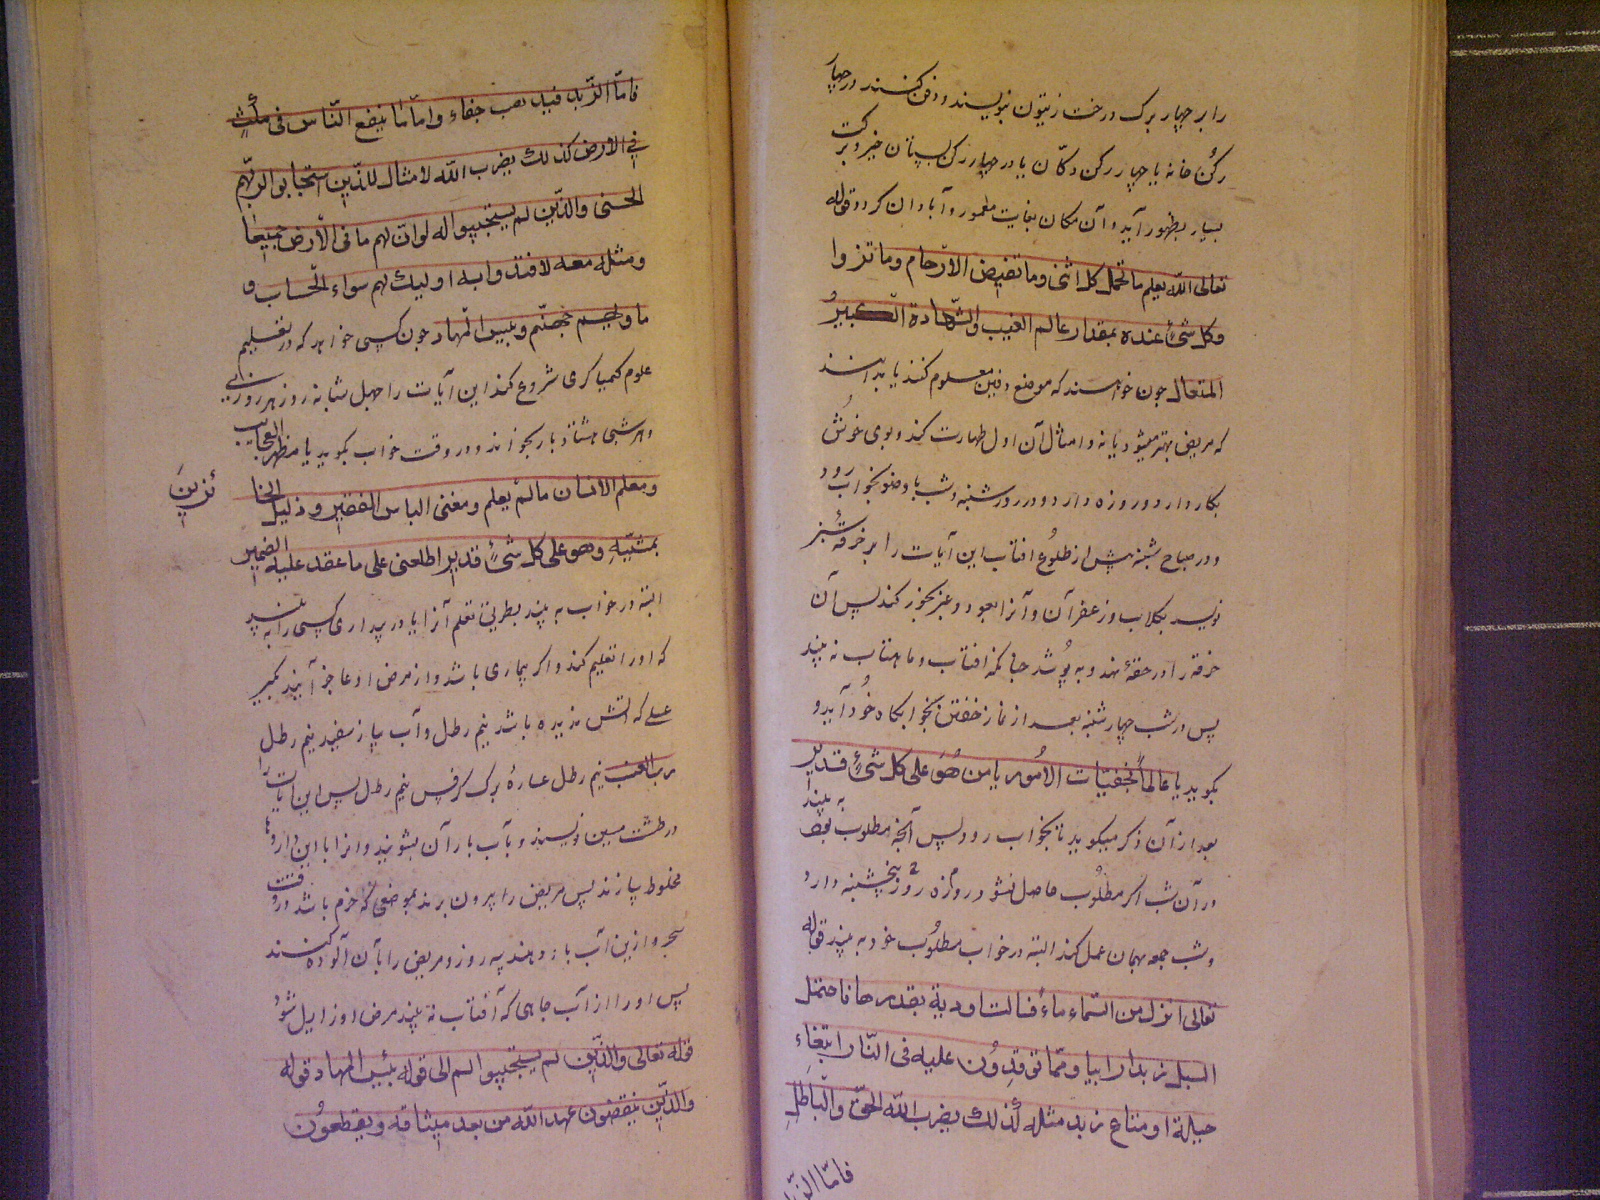 را بر چهار برک درخت زیتون بنویسند و دفن کنند در چهار
رکن خانه یا چهار رکن دکان یا در چهار رکن بستان خیر و برکت
بسیار بظهور آید و آن مکان بغایت معمور و آبادان کردد قوله
تعالی الله یعلم ما تحمل کل انثی وما تغیض الارحام وما تزوا
وکل شیٔ عنده بمقدار عالم الغیب والشهادة الکبیر
المتعال چون خواهند که موضع دفین معلوم کنند یا بدانند
که مریض بهتر میشود یا نه و امثال آن اول طهارت کند و بوی خوش
بکار دارد و روزه دارد و در روز شنبه و شب با وضو بخواب رود
و در صباح شنبه پیش از طلوع افتاب این آیات را بر خرقهٔ سبز
نویسد بکلاب و زعفران و آنرا بعود و عنبر بخور کند پس آن
خرقه را در حقهٔ نهد و بپوشد چنانکه افتاب و ماهتاب نه بیند
پس در شب چهارشنبه بعد از نماز خفتن بخوابکاه خود آید و
بکوید یا عالماً بخفیات الامور یا من هو علی کل شیٔ قدیر
بعد از آن ذکر میکوید تا بخواب رود پس آنچه مطلوب بود به بیند
در آن شب اکر مطلوب حاصل نشود روزه روز پنجشنبه دارد
و شب جمعه بهمان عمل کند البته در خواب مطلوب خود به بیند قوله
تعالی انزل من السماء ماء فسالت اودیة بقدرها فاحتمل
السیل زبدا رابیا ومما توقدون علیه فی النار ابتغاء
حیلة او متاع زبد مثله کذلك یضرب الله الحق والباطل
فاما الزبد
فاما الزبد فیذهب جفاء واما ما ینفع الناس فی مکث
فی الارض کذلك یضرب الله لامثال للذین استجابوا لربهم
الحسنی والذین لم یستجیبوا له لو ان لهم ما فی الارض جمیعا
ومثله معه لافتدوا به اولیك لهم سواء الحساب و
ماویهم جهنم وبیس المهاد چون کسی خواهد که در تعلیم
علوم کیمیا کری شروع کند این آیات را چهل شبانه روز هر روزی
و هر شبی هشتاد بار بخواند و در وقت خواب بکوید یا مظهر العجایب
ومعلم الانسان ما لم یعلم ومغنی الباس الفقیر و
بمشیه وهو علی کل شیٔ قدیر اطلعنی علی ما عقد علیه الضمیر
البته در خواب به بیند بطریق تعلم آنرا یا در بیداری کسی را به
که او را تعلیم کند و اکر بیماری باشد و از مرض او عاجز آیند بکیرد
عسلی که اتش ندیده باشد نیم رطل و آب پیاز سفید نیم رطل
رب العنب نیم رطل عصارهٔ برک کرفس نیم رطل پس این آیات را
در طشت مسین نویسند و بآب باران بشویند و انرا با این داروها
مخلوط سازند پس مریض را بیرون برند بموضعی که خرم باشد در وقت
سحر و ازین آب باو دهند سه روز و مریض را بآن آلوده کنند
پس او را از آب جاهی که آفتاب نه بیند مرض او زایل شود
قوله تعالی والذین لم یستجیبوا لم الی قوله بئس المهاد قوله
والذین ینقضون عهد الله من بعد میثاقه ویقطعون